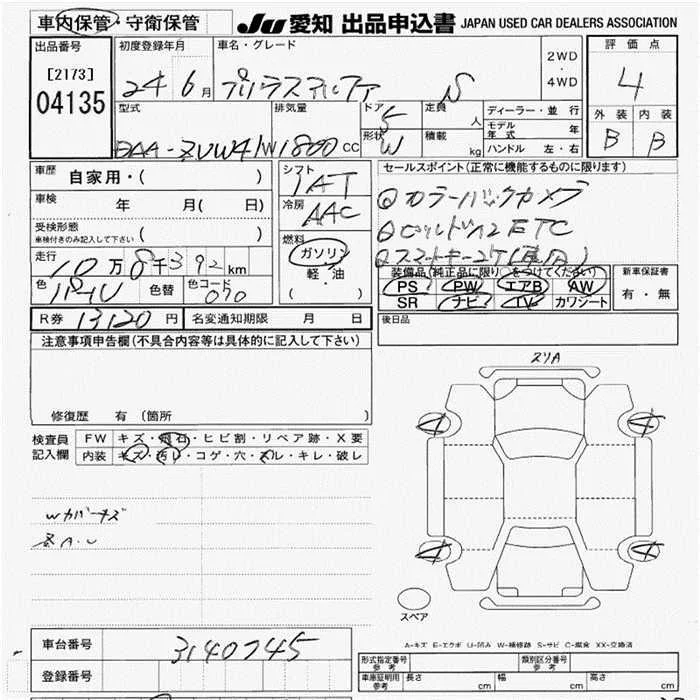 車内保管・守衛保管 JU 愛知 出品申込書 JAPAN USED CAR DEALERS ASSOCIATION
出品番号 初度登録年月 車名・グレード 2WD ・ 4WD 評価点
[2173] 24 6月 プリウスアルファ S 4
04135
型式 排気量 ドア 5 定員 人 ディーラー・並行 外装 内装
モデル年式 年 B B
DAA-ZVW41W 1800cc 形状 W 積載 kg ハンドル 左・右
車歴 自家用・( ) シフト 1AT セールスポイント(正常に機能するものに限ります)
車検 年 月(日) 冷房 AAC ◎カラーバックカメラ
受検形態 ( ) ◎ビルトインETC
車検付きのみ記入して下さい
走行 10万8千392km 燃料 ガソリン ◎スマートキー2ケ
軽・油 ( ) 装備品(純正品に限り○をつけてください) 新車保証書
色 パール 色替 色コード 070 PS PW エアB AW 有・無
SR ナビ TV カワシート
R券 13120円 名変通知期限 月 日 後日品
注意事項申告欄(不具合内容等は具体的に記入して下さい)
スリA
修復歴 有 (箇所 )
検査員記入欄 FW キズ・飛石・ヒビ割・リペア跡・X要
内装 キズ・汚れ・コゲ・穴・スル・キレ・破レ
A A
Wカバーキズ
A A
スペア
A-キズ E-エクボ U-凹み W-補修跡 S-サビ C-腐食 XX-交換済
車台番号 3140745 形式指定番号 参考 類別区分番号 参考
登録番号 車庫証明用 参考 長さ cm 幅 cm 高さ cm